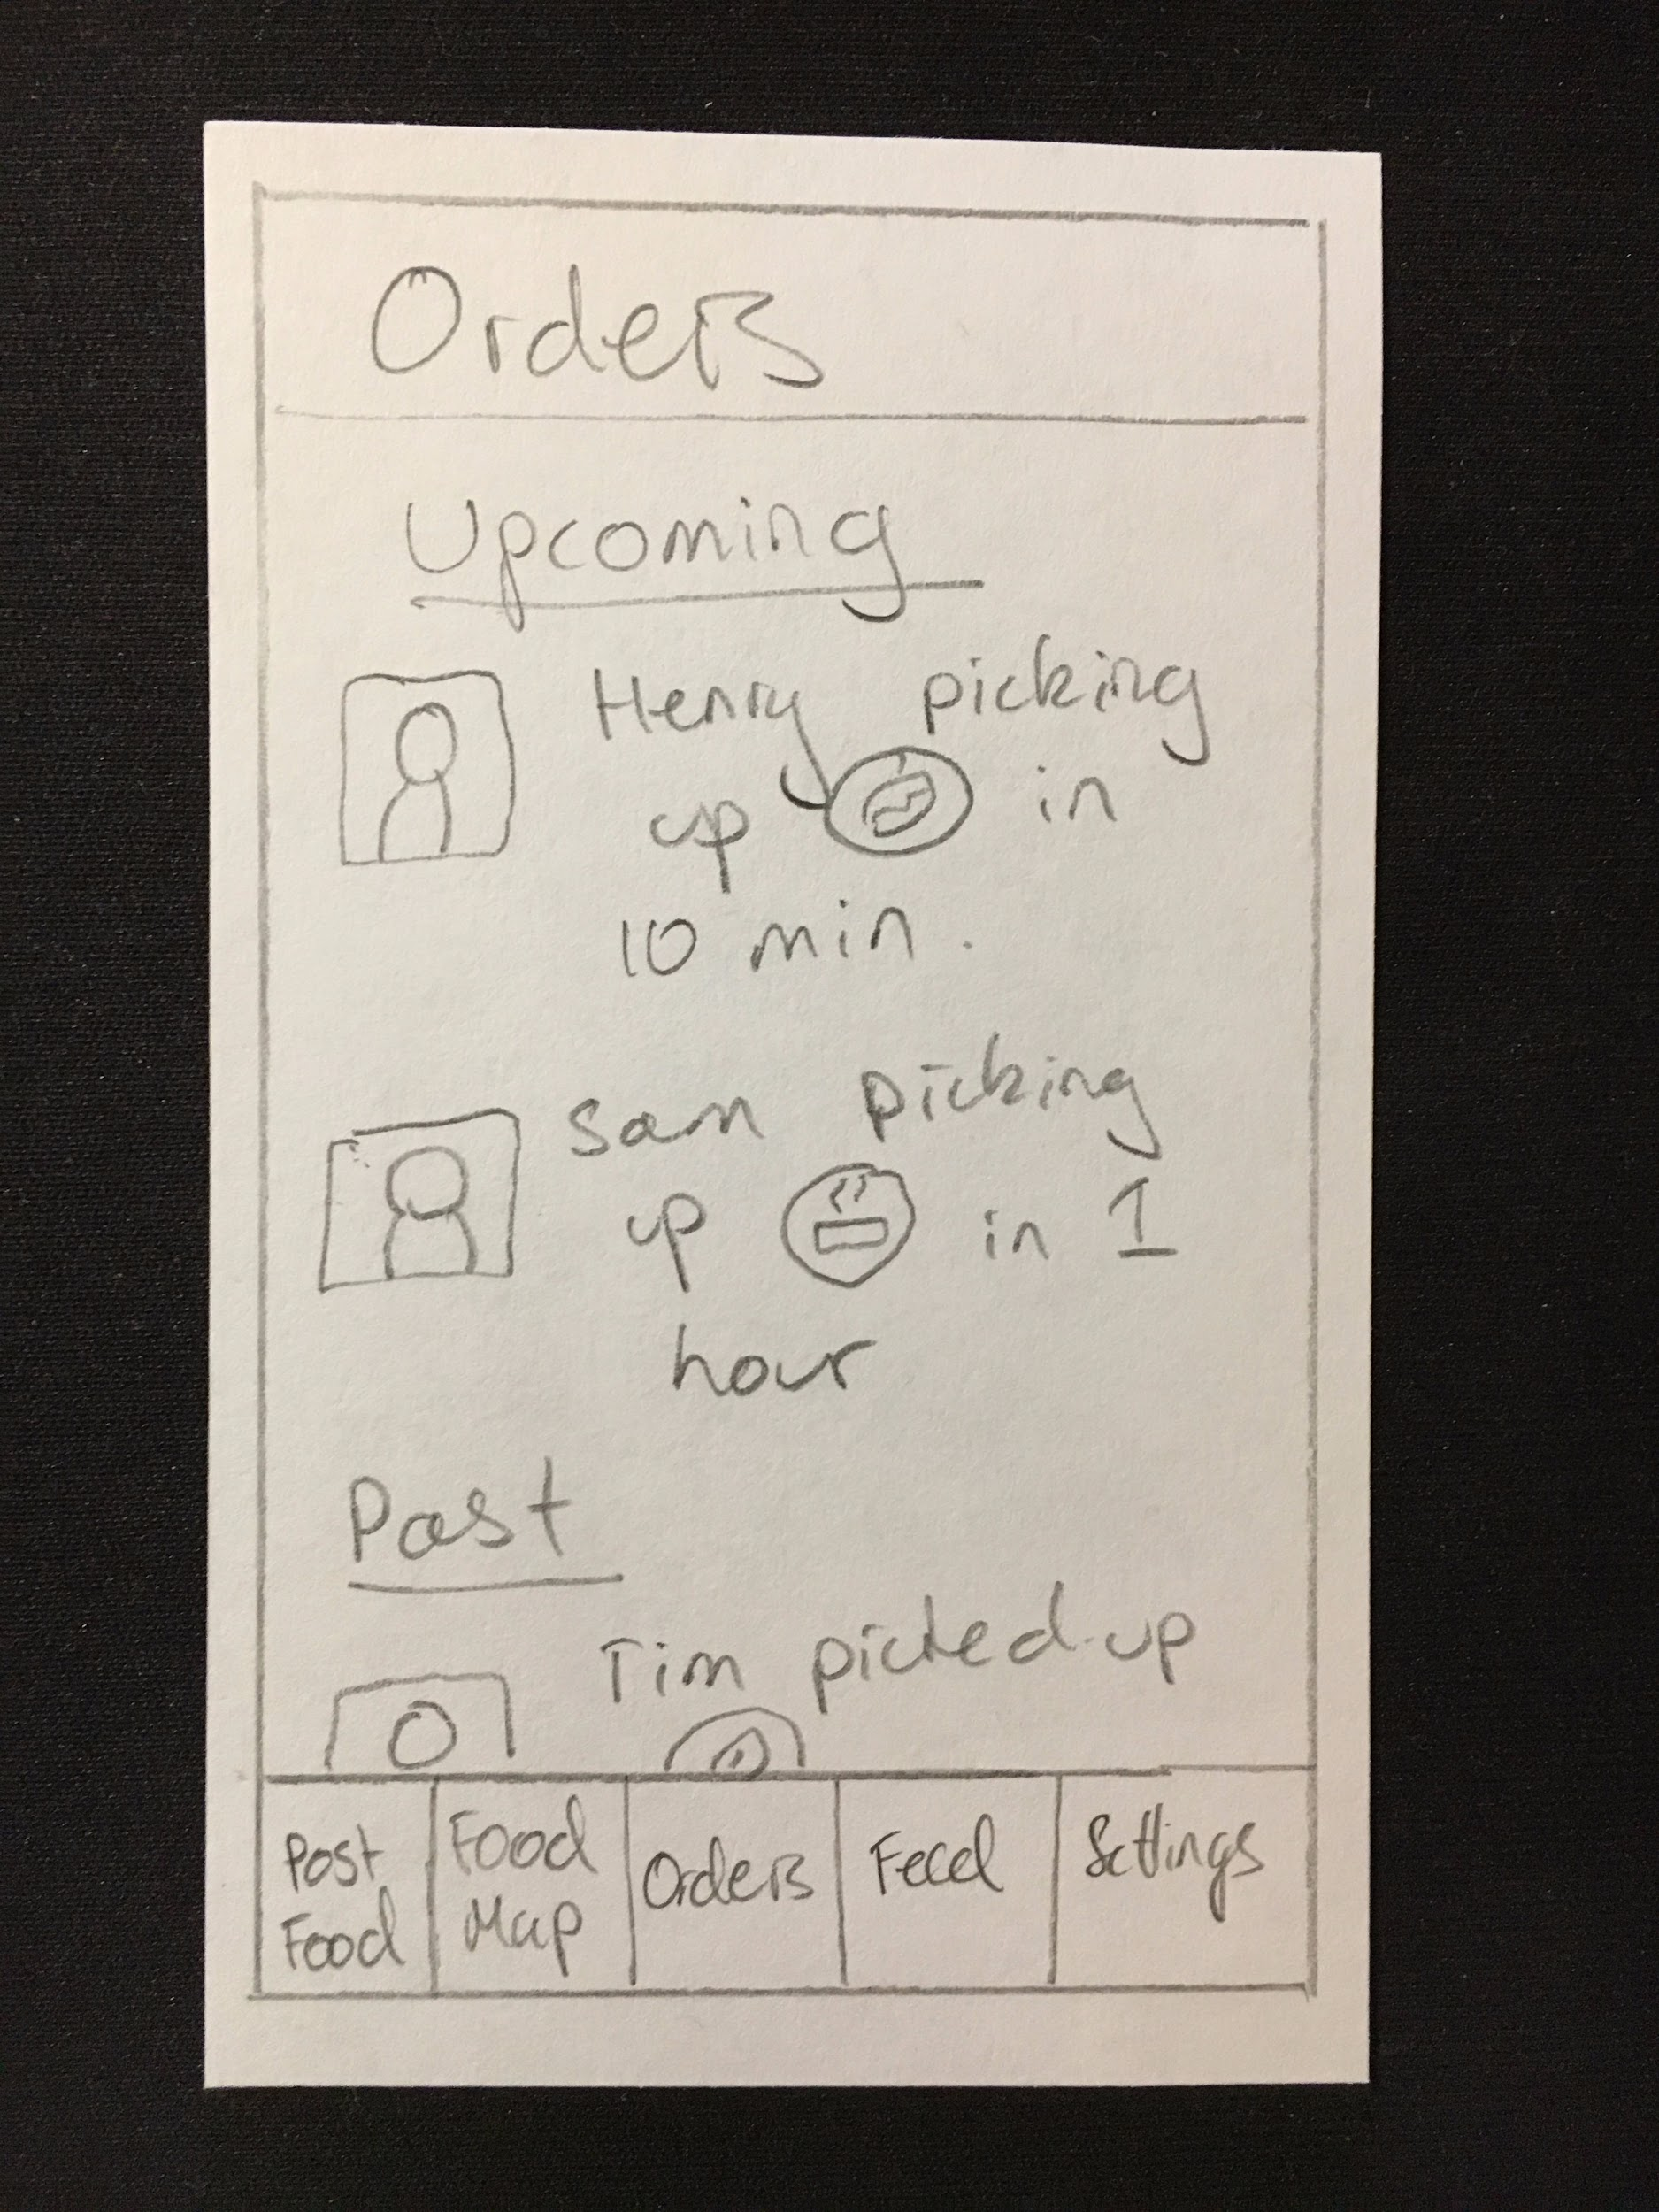 Orders
Upcoming
Henry picking
up in
10 min.
Sam picking
up in 1
hour
Past
Tim picked up
Post
Food
Food
Map
Orders
Feed
Settings